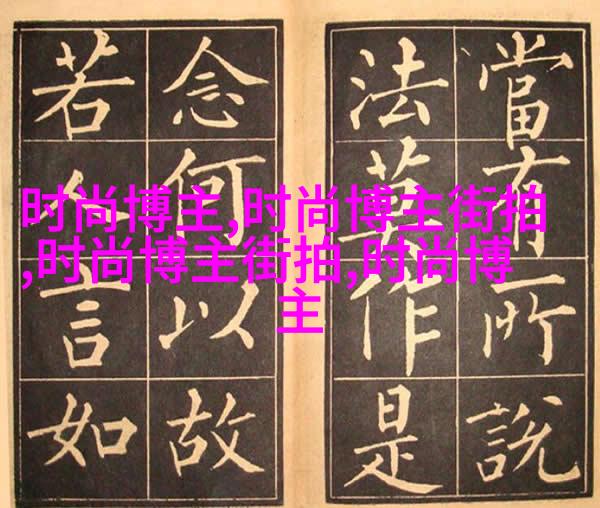 當有所說
法莫作是
念何以故
若人言如
时尚博主,时尚博主街拍
,时尚博主街拍,时尚博
主